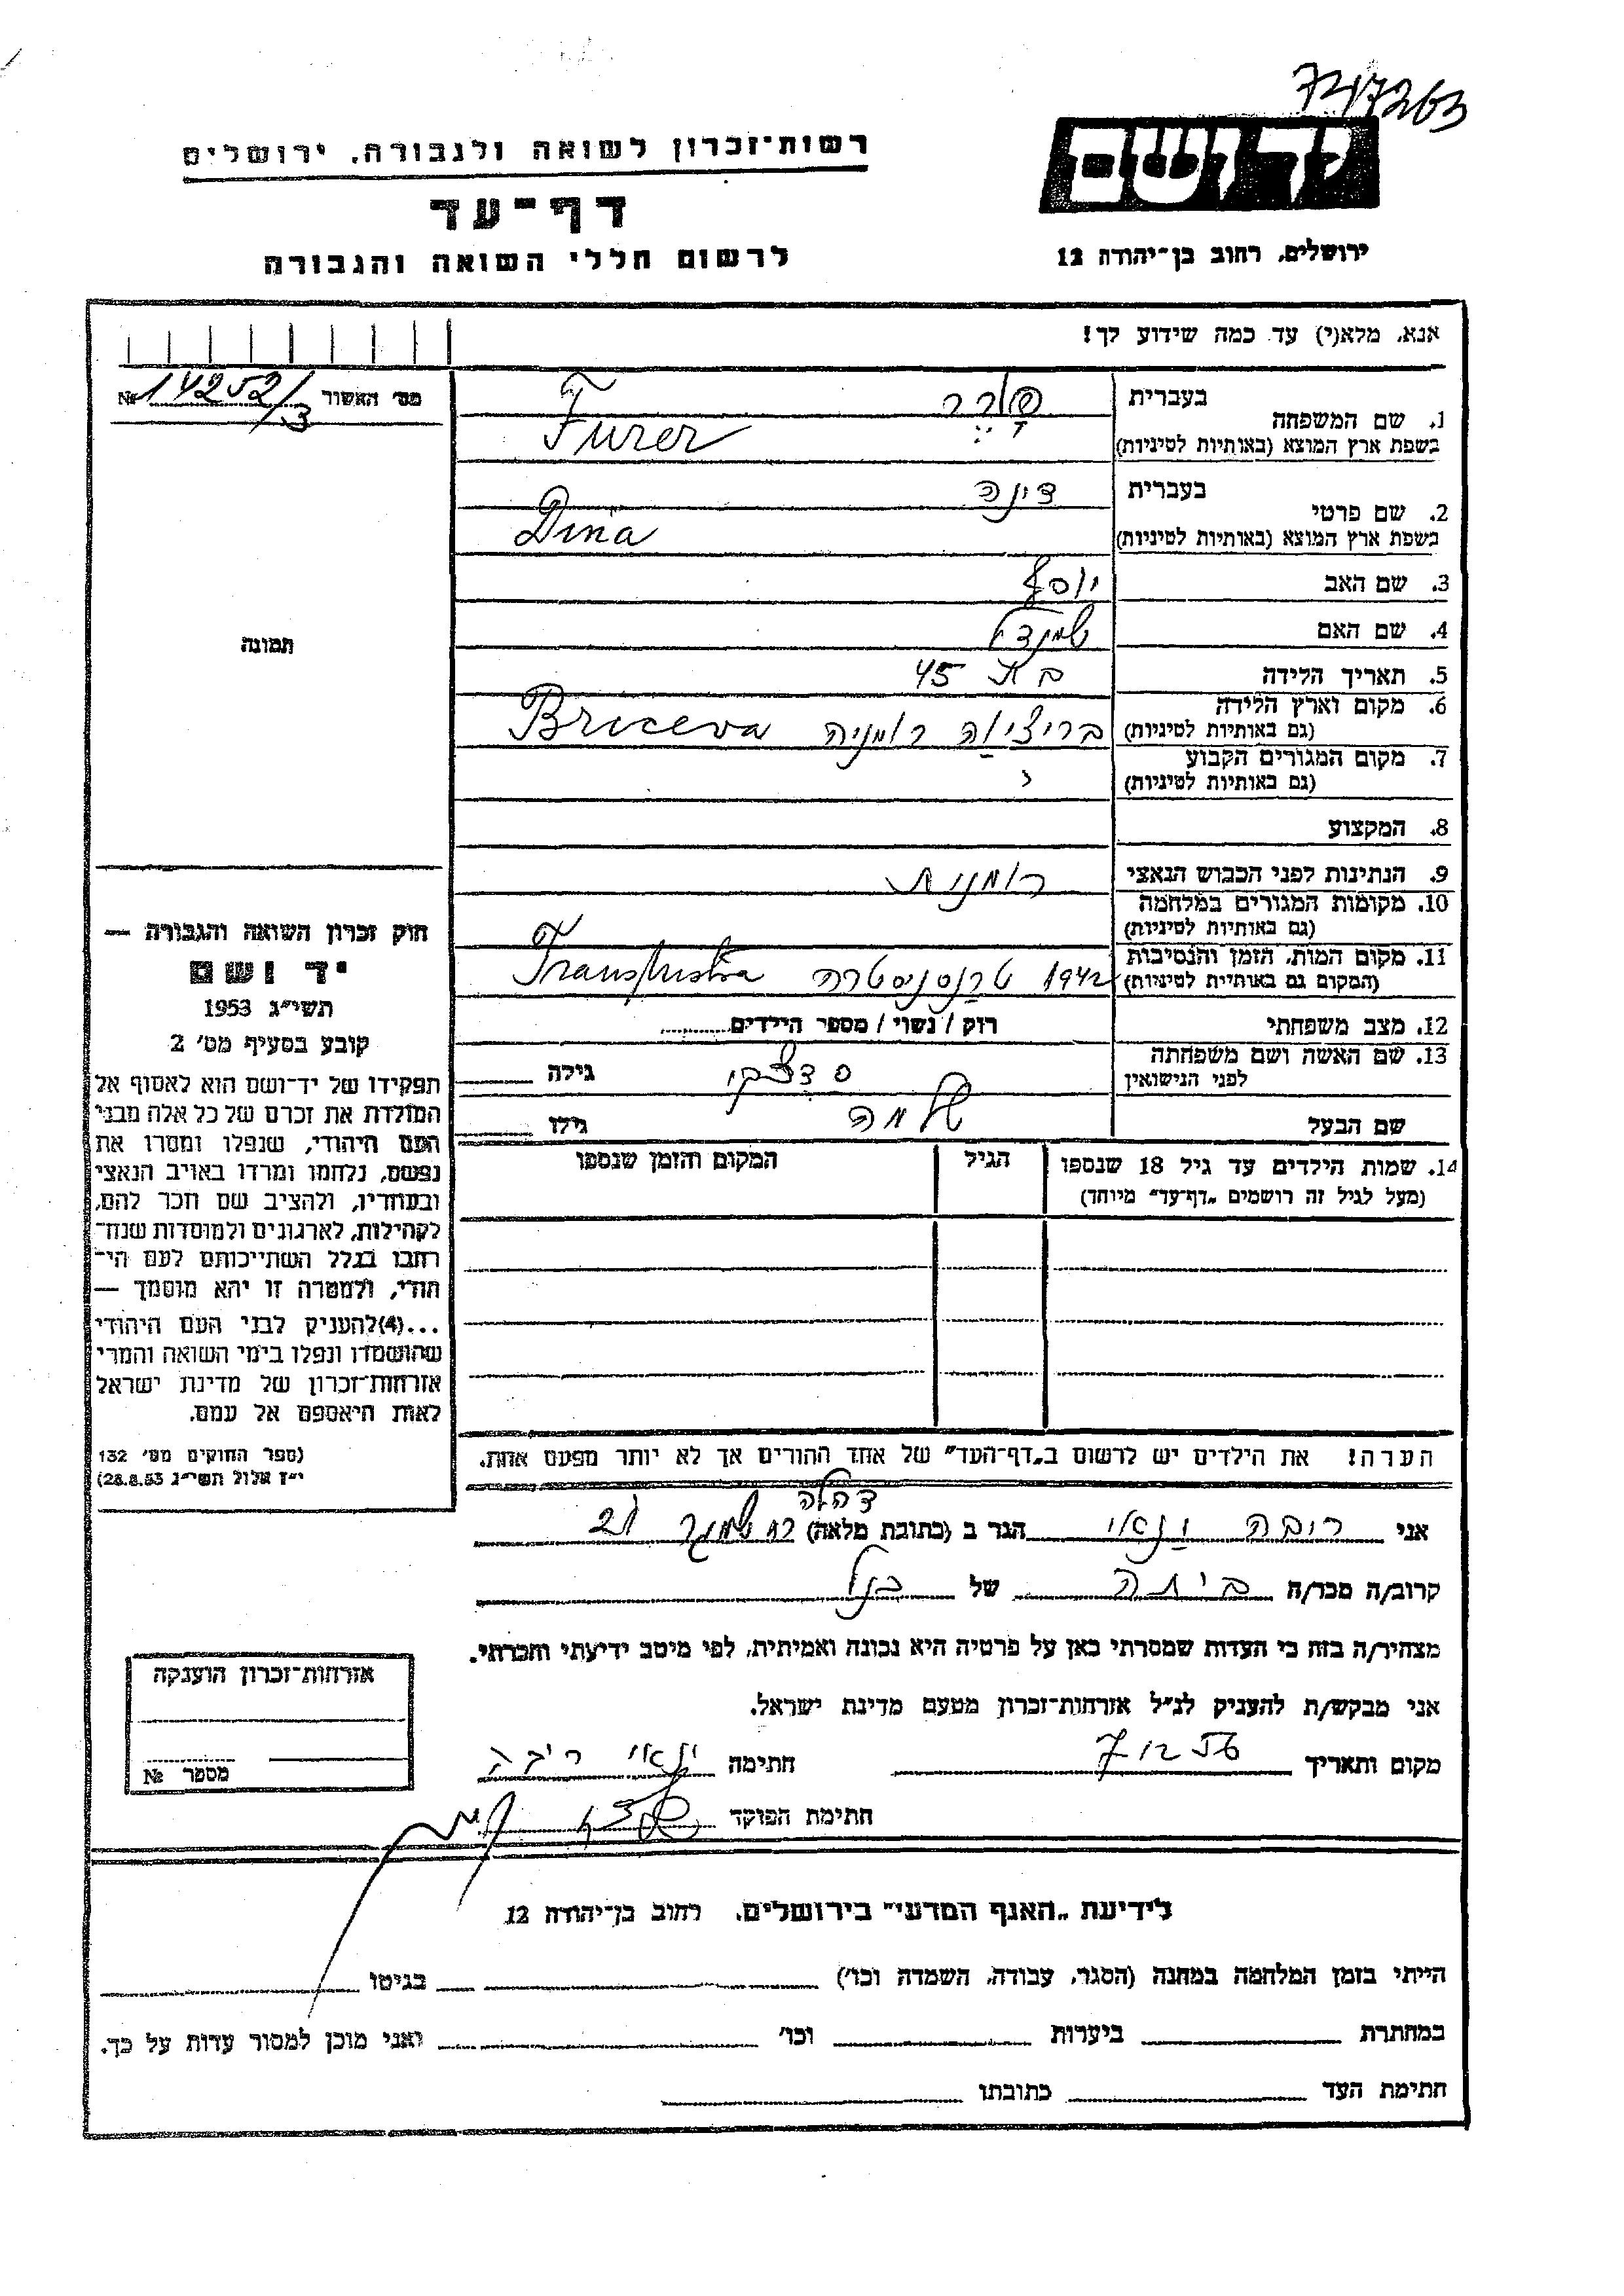 7217263
רשות־זכרון לשואה ולגבורה, ירושלים
יד ושם
דף־עד
לרשום חללי השואה והגבורה
ירושלים, רחוב בן־יהודה 12
אנא, מלא(י) עד כמה שידוע לך!
מס׳ האשור № 14252/3
1. שם המשפחה
בעברית פורר
בשפת ארץ המוצא (באותיות לטיניות) Furer
2. שם פרטי
בעברית דינה
בשפת ארץ המוצא (באותיות לטיניות) Dina
3. שם האב יוסף
4. שם האם
5. תאריך הלידה בת 45
6. מקום וארץ הלידה
(גם באותיות לטיניות) בריציוה רומניה Briceva
7. מקום המגורים הקבוע
(גם באותיות לטיניות)
8. המקצוע
9. הנתינות לפני הכבוש הנאצי רומנית
10. מקומות המגורים במלחמה
(גם באותיות לטיניות)
11. מקום המות, הזמן והנסיבות
(המקום גם באותיות לטיניות) 1942 טרנסניסטרה Transnistra
12. מצב משפחתי רוק / נשוי / מספר הילדים
13. שם האשה ושם משפחתה
לפני הנישואין גילה
שם הבעל שלמה גילו
14. שמות הילדים עד גיל 18 שנספו
(מעל לגיל זה רושמים „דף־עד״ מיוחד)
הגיל
המקום והזמן שנספו
תמונה
חוק זכרון השואה והגבורה —
יד ושם
תשי״ג 1953
קובע בסעיף מס׳ 2
תפקידו של יד־ושם הוא לאסוף אל
המולדת את זכרם של כל אלה מבני
העם היהודי, שנפלו ומסרו את
נפשם, נלחמו ומרדו באויב הנאצי
ובעוזריו, ולהציב שם וזכר להם,
לקהילות, לארגונים ולמוסדות שנח־
רבו בגלל השתייכותם לעם הי־
הודי, ולמטרה זו יהא מוסמך —
...(4)להעניק לבני העם היהודי
שהושמדו ונפלו בימי השואה והמרי
אזרחות־זכרון של מדינת ישראל
לאות היאספם אל עמם.
(ספר החוקים מס׳ 132
י״ז אלול תשי״ג 28.8.53)
הערה! את הילדים יש לרשום ב„דף־העד״ של אחד ההורים אך לא יותר מפעם אחת.
אני ריבה ינאי הגר ב (כתובת מלאה) 21
קרוב/ה מכר/ה ביתה של הנ״ל
מצהיר/ה בזה כי העדות שמסרתי כאן על פרטיה היא נכונה ואמיתית, לפי מיטב ידיעתי והכרתי.
אני מבקש/ת להעניק לנ״ל אזרחות־זכרון מטעם מדינת ישראל.
מקום ותאריך 7 12 56 חתימה ינאי ריבה
חתימת הפוקד
אזרחות־זכרון הוענקה
מספר №
לידיעת „האגף המדעי״ בירושלים, רחוב בן־יהודה 12
הייתי בזמן המלחמה במחנה (הסגר, עבודה, השמדה וכו׳) בגיטו
במחתרת ביערות וכו׳ ואני מוכן למסור עדות על כך.
חתימת העד כתובתו